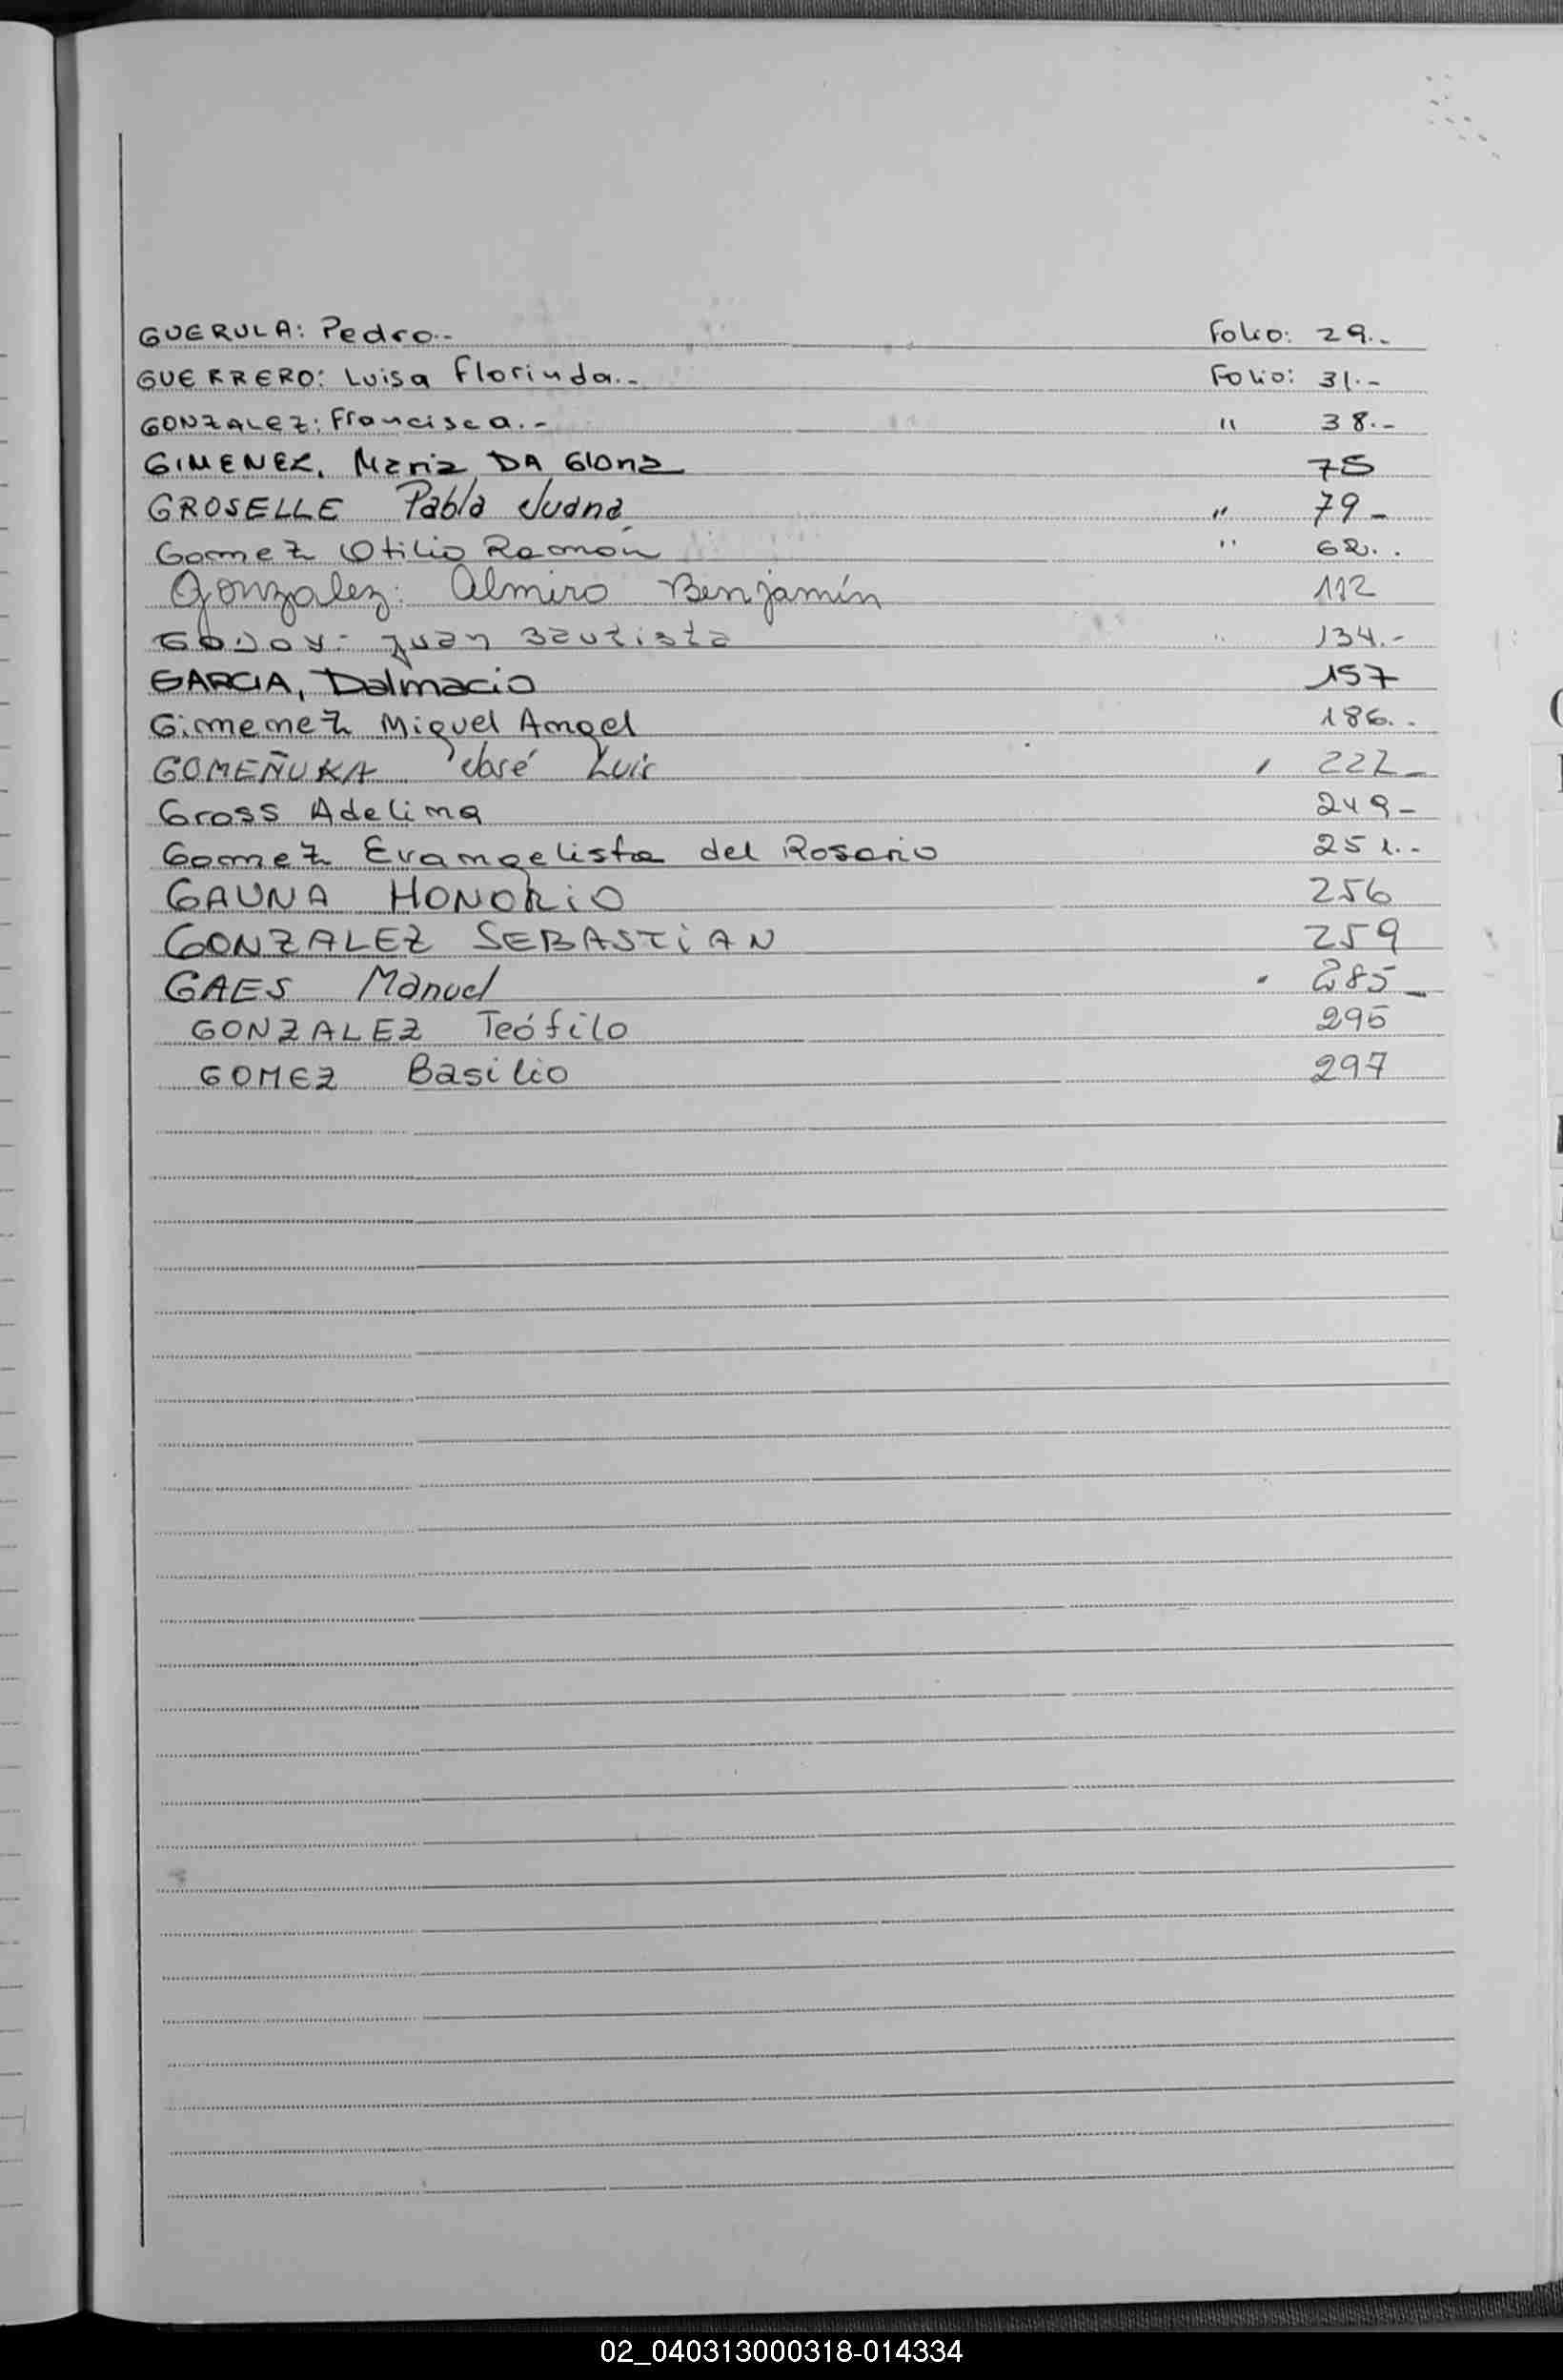 GUERULA: Pedro.- Folio: 29.-
GUERRERO: Luisa Florinda.- Folio: 31.-
GONZALEZ: Francisca.- " 38.-
GIMENEZ, Maria DA Gloria 75
GROSELLE Pabla Juana " 79-
Gomez Otilio Ramón " 62..
Gonzalez: Almiro Benjamín 112
GODOY: Juan Bautista " 134.-
GARCIA, Dalmacio 157
Gimenez Miguel Angel 186..
GOMEÑUKA José Luis 222-
Gross Adelina 249-
Gomez Evangelista del Rosario 251..
GAUNA HONORIO 256
GONZALEZ SEBASTIAN 259
GAES Manuel 285-
GONZALEZ Teófilo 295
GOMEZ Basilio 297
02_040313000318-014334